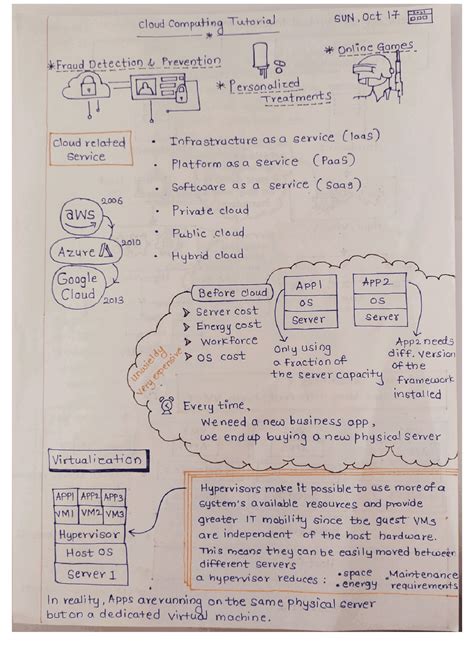 Cloud Computing Tutorial
SUN, Oct 17
* Fraud Detection & Prevention
* Personalized Treatments
* Online Games
Cloud related
Service
• Infrastructure as a service (Iaas)
• Platform as a service (Paas)
• Software as a service (Saas)
• Private cloud
• Public cloud
• Hybrid cloud
aws 2006
Azure 2010
Google
Cloud 2013
Before cloud
➤ Server cost
➤ Energy cost
➤ Workforce
➤ OS cost
Unwieldy
Very expensive
App1
OS
Server
App2
OS
Server
Only using
a fraction of
the server capacity
App2 needs
diff. version
of the
framework
installed
Every time,
We need a new business app,
we end up buying a new physical server
Virtualization
APP1 APP2 APP3
VM1 VM2 VM3
Hypervisor
Host OS
Server 1
Hypervisors make it possible to use more of a
system's available resources and provide
greater IT mobility since the guest VMs
are independent of the host hardware.
This means they can be easily moved between
different servers
a hypervisor reduces : • space • Maintenance
• energy requirements
In reality, Apps are running on the same physical server
but on a dedicated virtual machine.